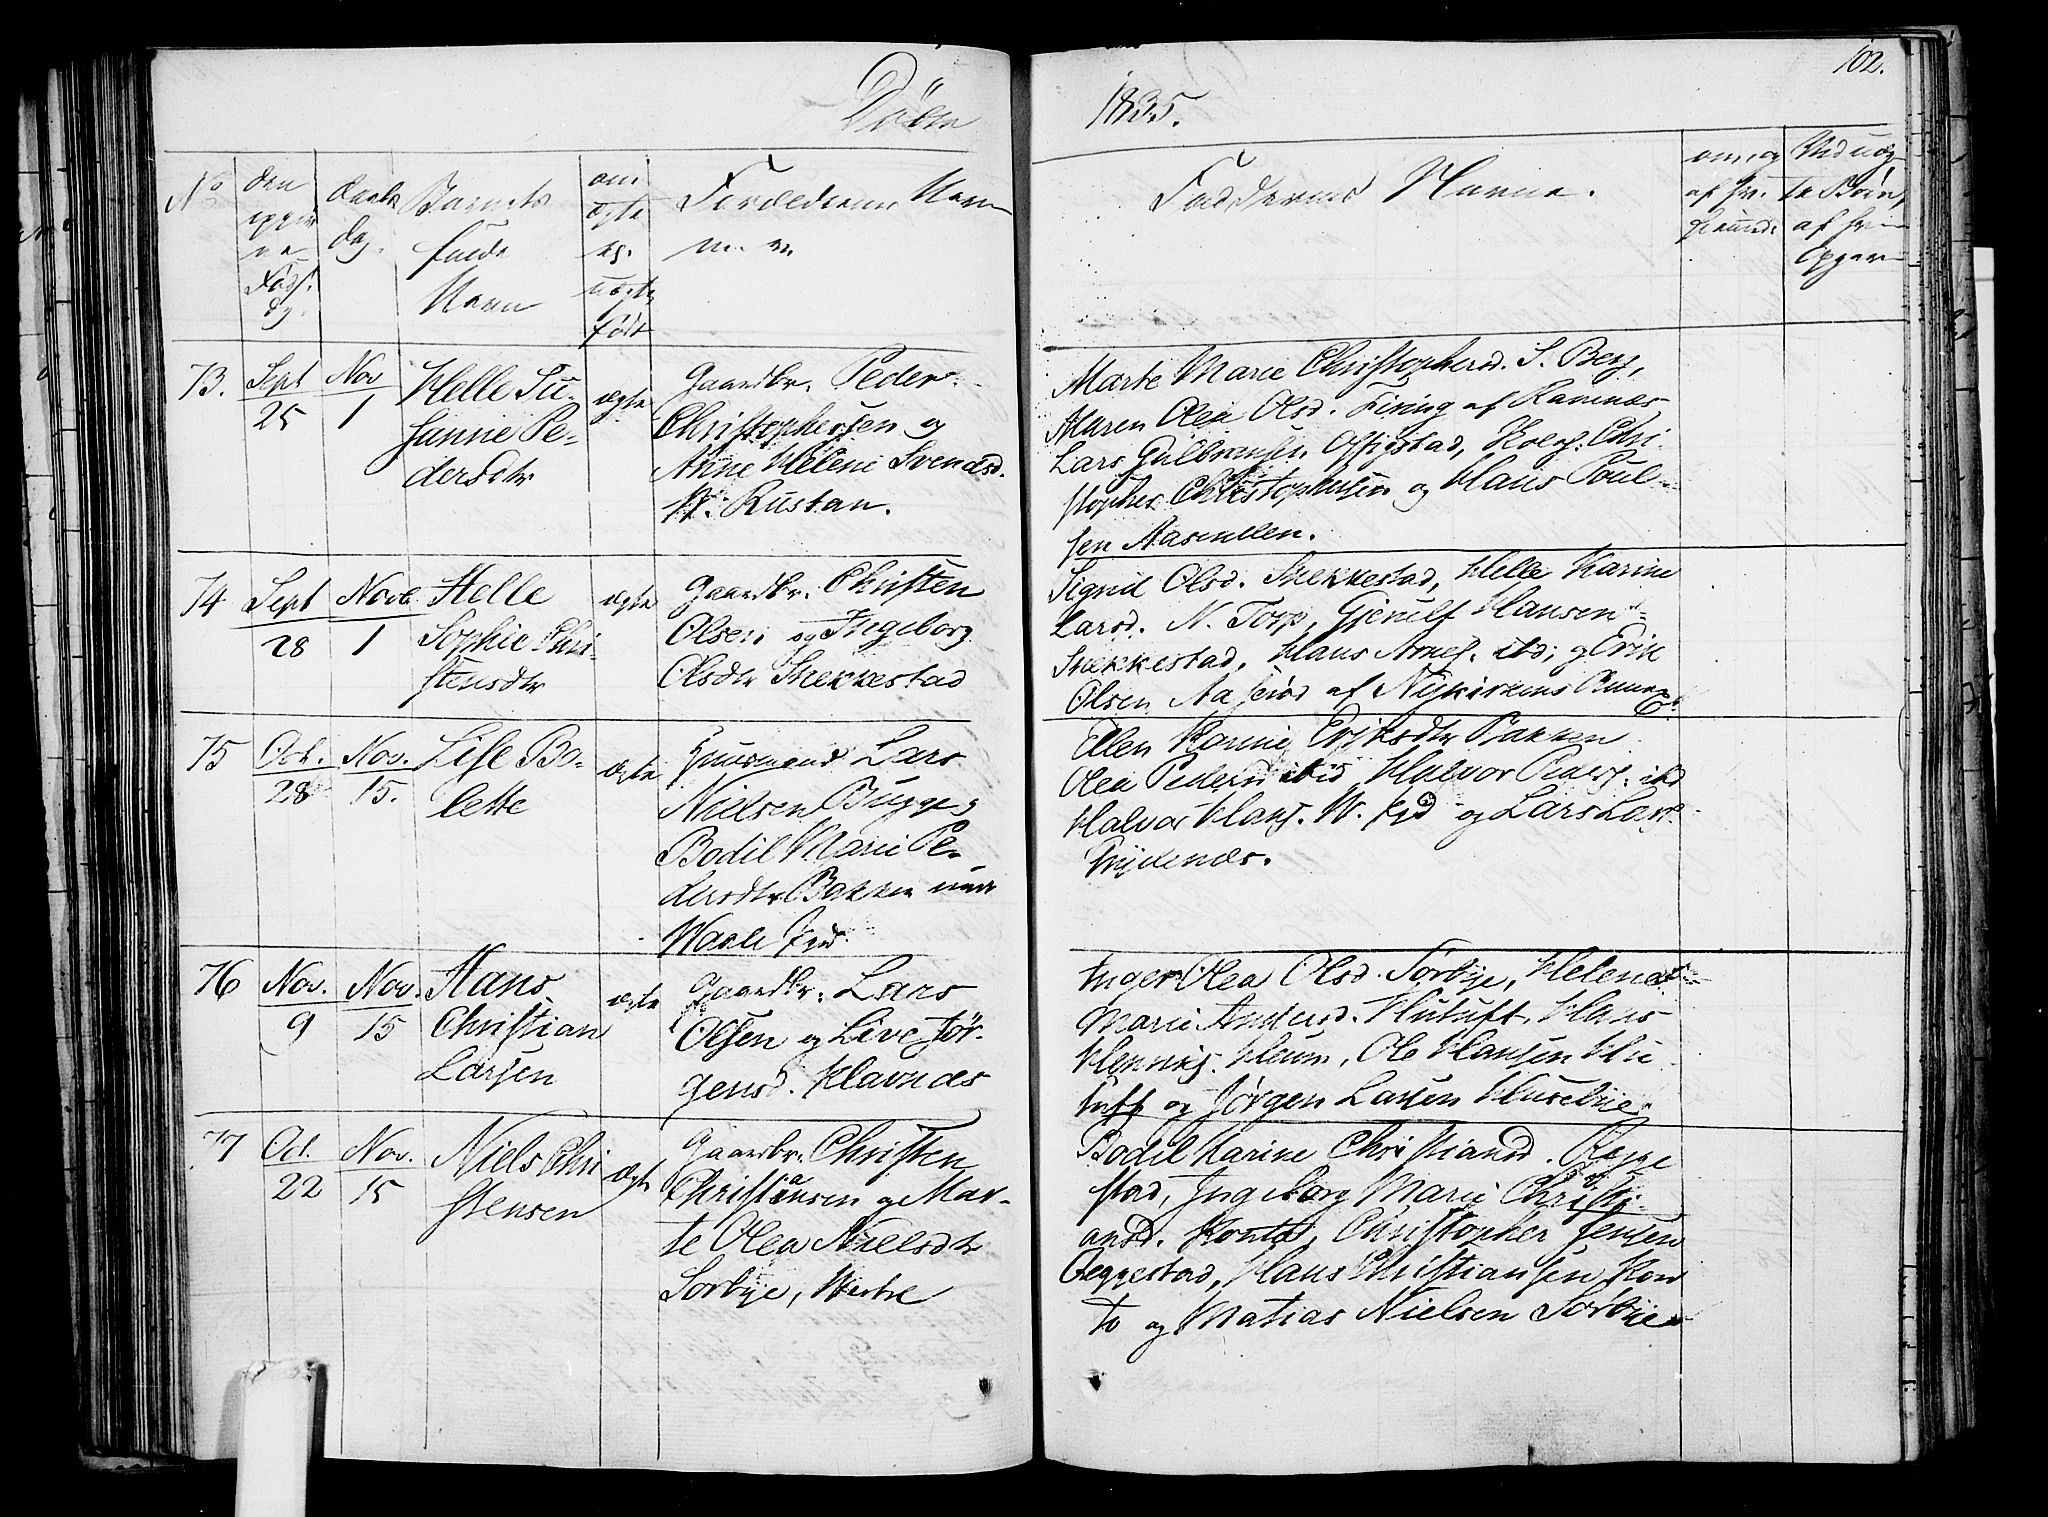 102.
Døbte
1835.
No
den
opgiv
ne
Føds.
dg.
daabs
dag.
Barnets
fulde
Navn
om
ægte
eg.
uægte
født
Forældrenes Navn
m. v.
Faddernes Navne.
om og
af hv.
Ved uæg
te Børn,
af hv
opgav
73.
Sept
25
Nov
1
Helle Su-
sanne Pe-
dersdtr
ægte
Gaardbr. Peder
Christophersen og
Anne Helene Svendsd.
N. Rustan.
Marte Marie Christophersd. S. Berg,
Maren Olea Olsd. Firing af Ramnæs
Lars Gulbransen Offigstad, Kbers. Chri-
stopher Christophersen og Hans Poul-
sen Aasmullen.
74
Sept
28
Nove
1
Helle
Sophie Chri-
stensdtr
ægte
Gaardbr. Christen
Olsen og Ingeborg
Olsdtr Snekkestad
Sigrid Olsd. Snekkestad, Helle Karine
Larsd. N. Torp, Gjerulf Hansen
Snekkestad, Hans Arnes. ibd; og Erik
Olsen Aaserød af Nykirkens Annex.
75
Oct.
28
Nov.
15.
Lise Bo-
lette
ægte
Huusmand Lars
Nielsen Bugge og
Bodil Marie Pe-
dersdtr Bakken und
Waale
Ellen Karine Eriksdtr Bakken
Olea Pedersd ibid Halvor Peders. ibd
Halvor Hans. W. og Lars Lars.
Trydenæs.
76
Nov.
9
Nov.
15
Hans
Christian
Larsen
ægte
Gaardbr. Lars
Olsen og Live Jør-
gensd. Klavnæs
Inger Olea Olsd. Sørbye, Helene
Marie Andersd. Hutuft, Hans
Hennings. Heum, Ole Hansen Hu
tuft og Jørgen Larsen Husebye
77
Oct.
22
Nov.
15
Niels Chri
stensen
ægte
Gaardbr. Christen
Christiansen og Mar-
te Olea Nielsdtr
Sørbye, Westre
Bodil Karine Christiansd. Regge
stad, Ingeborg Marie Christi-
ansd. Konto, Christopher Jensen
Reggestad, Hans Christiansen Kon
to og Matias Nielsen Sørbye